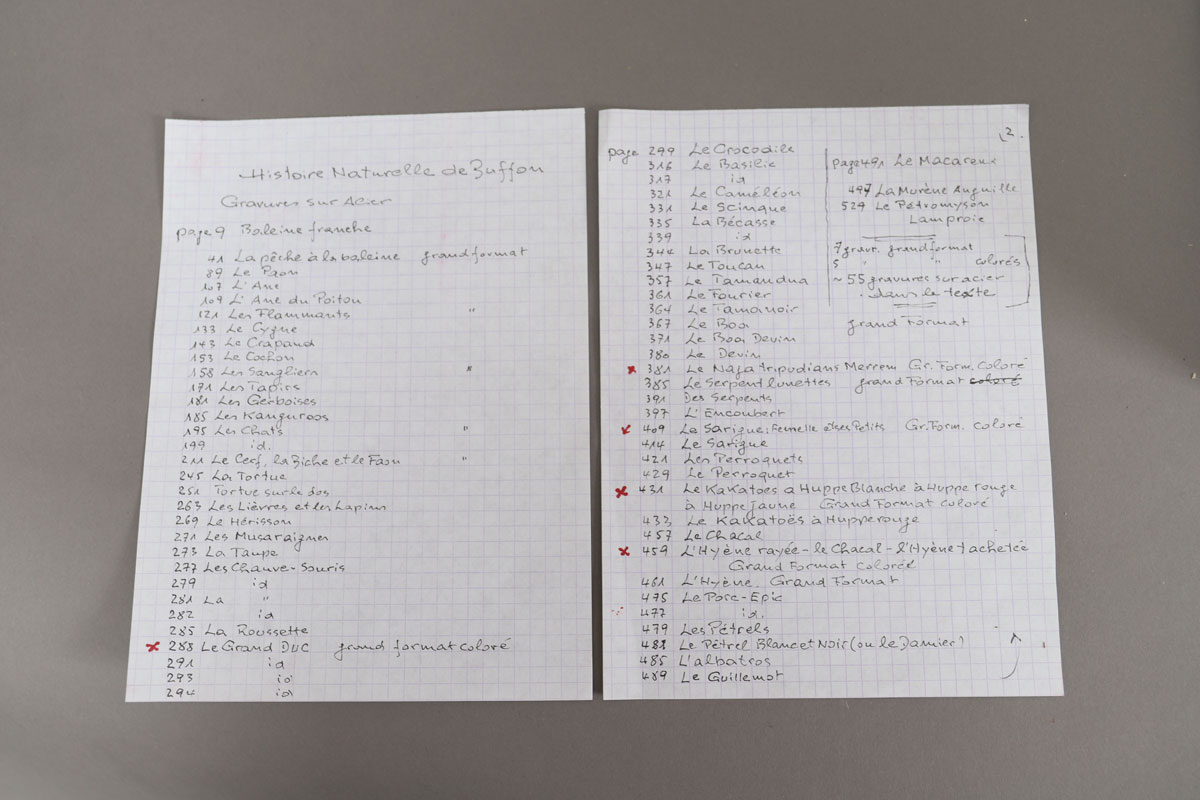 Histoire Naturelle de Buffon
Gravures sur Acier
page 9 Baleine franche
41 La pêche à la baleine grand format
89 Le Paon
107 L'Ane
109 L'Ane du Poitou
121 Les Flammants "
133 Le Cygne
143 Le Crapaud
153 Le Cochon
158 Les Sangliers "
171 Les Tapirs
181 Les Gerboises
185 Les Kanguroos
195 Les Chats "
199 id.
211 Le Cerf, la Biche et le Faon "
245 La Tortue
251 Tortue sur le dos
263 Les Lièvres et les Lapins
269 Le Hérisson
271 Les Musaraignes
273 La Taupe
277 Les Chauve-Souris
279 id
281 La "
282 id
285 La Roussette
x 288 Le Grand Duc grand format coloré
291 id
293 id
294 id
2.
page 299 Le Crocodile
316 Le Basilic
317 id
321 Le Caméléon
331 Le Scinque
335 La Bécasse
339 id
344 La Brunette
347 Le Toucan
357 Le Tamandua
361 Le Fourier
364 Le Tamanoir
367 Le Boa grand Format
371 Le Boa Devin
380 Le Devin
x 381 Le Naja tripudians Merrem Gr. Form. Coloré
385 Le Serpent lunettes grand Format coloré
391 Des Serpents
397 L'Encoubert
409 La Sarigue; Femelle et ses Petits Gr. Form. coloré
414 Le Sarigue
421 Les Perroquets
429 Le Perroquet
x 431 Le Kakatoes a Huppe Blanche à Huppe rouge
à Huppe Jaune Grand Format coloré
433 Le Kakatoës à Huppe rouge
457 Le Chacal
x 459 L'Hyène rayée - le Chacal - l'Hyène tachetée
Grand Format colorée
461 L'Hyène Grand Format
475 Le Porc-Epic
477 id.
479 Les Pétrels
481 Le Pétrel Blanc et Noir (ou le Damier)
485 L'albatros
489 Le Guillemot
page 491 Le Macareux
497 La Murène Anguille
529 Le Pétromyson
Lamproie
7 gravr. grand format
5 " " colorés
~ 55 gravures sur acier
dans le texte